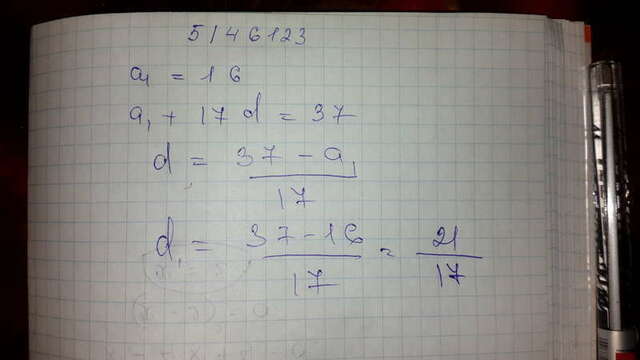 5146123
a₁ = 16
a₁ + 17 d = 37
d = (37 - a₁) / 17
d₁ = (37 - 16) / 17 = 21 / 17